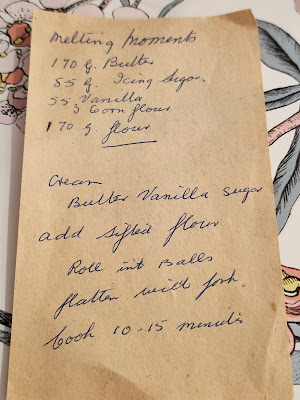 Melting Moments
170 g. Butter
55 g. Icing Sugar.
55 Vanilla
g Corn flour
170 g. flour
Cream
Butter Vanilla Sugar
add sifted flour
Roll int Balls
flatten with fork.
Cook 10-15 minutes